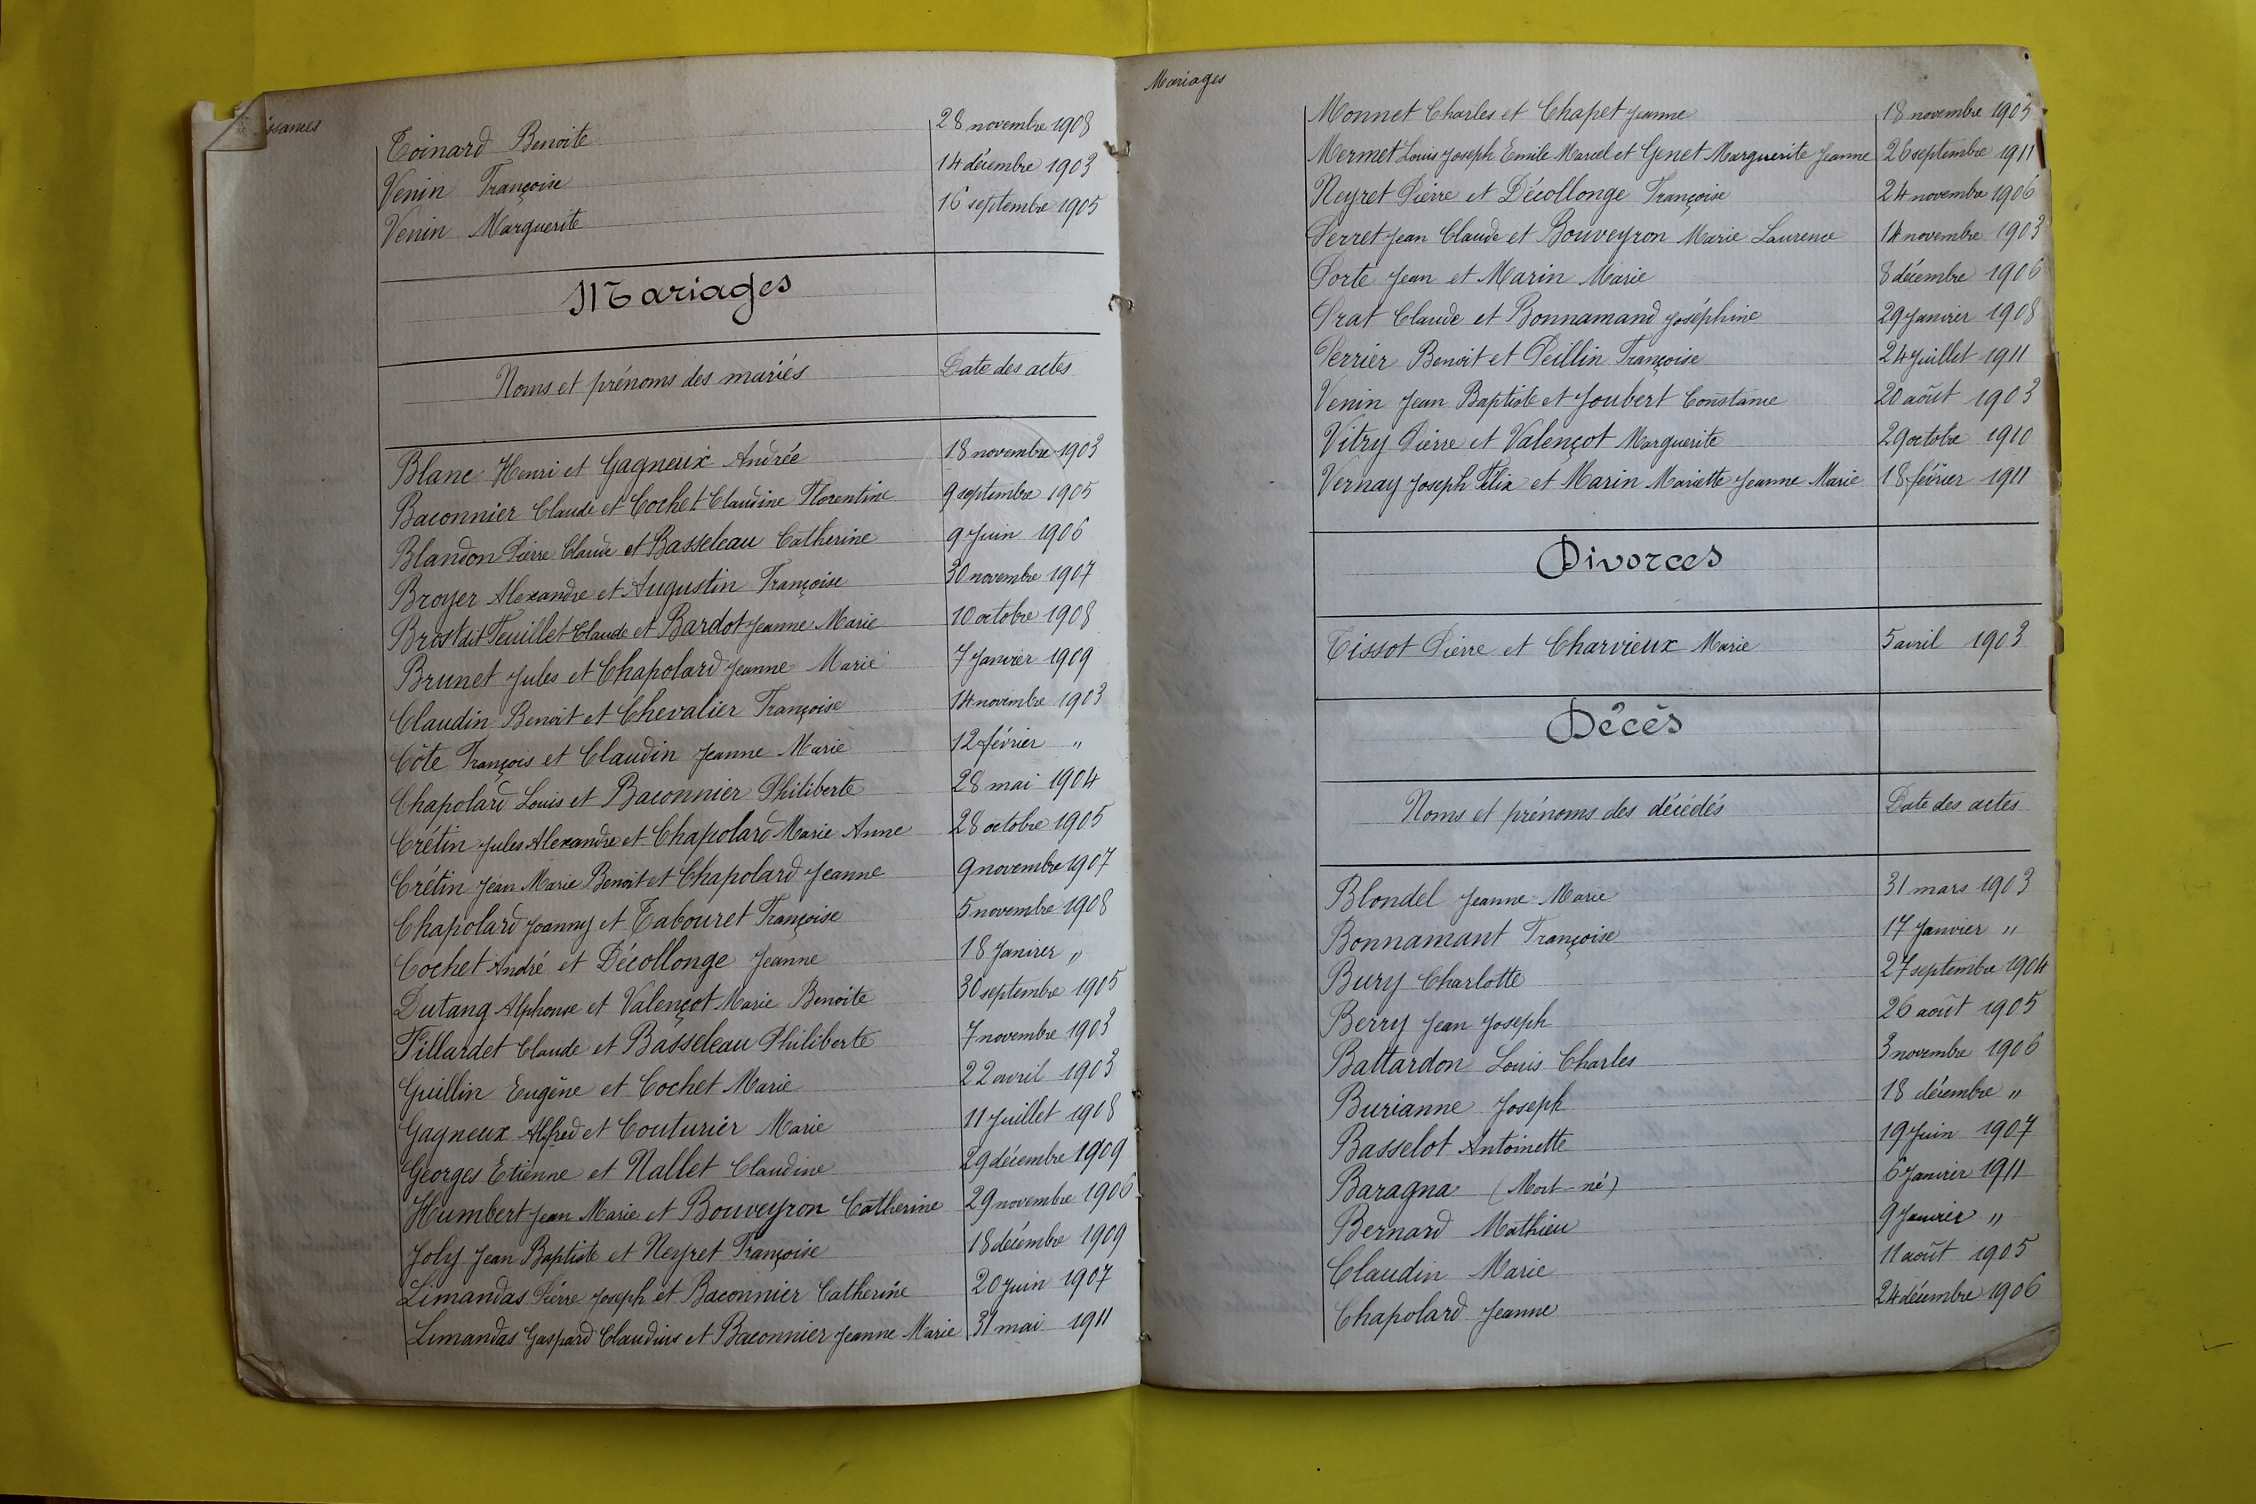 ssances
Toinard Benoite 28 novembre 1908
Venin Françoise 14 décembre 1903
Venin Marguerite 16 septembre 1905
Mariages
Noms et prénoms des mariés Date des actes
Blanc Henri et Gagneux Andrée 18 novembre 1903
Baconnier Claude et Cochet Claudine Florentine 9 septembre 1905
Blandon Pierre Claude et Basseleau Catherine 9 Juin 1906
Broyer Alexandre et Augustin Françoise 30 novembre 1907
Brost dit Feuillet Claude et Bardot Jeanne Marie 10 octobre 1908
Brunet Jules et Chapolard Jeanne Marie 7 Janvier 1909
Claudin Benoit et Chevalier Françoise 14 novembre 1903
Côte François et Claudin Jeanne Marie 12 février "
Chapolard Louis et Baconnier Philiberte 28 mai 1904
Crétin Jules Alexandre et Chapolard Marie Anne 28 octobre 1905
Crétin Jean Marie Benoit et Chapolard Jeanne 9 novembre 1907
Chapolard Joanny et Tabouret Françoise 5 novembre 1908
Cochet André et Décollonge Jeanne 18 Janvier "
Dutang Alphonse et Valençot Marie Benoite 30 septembre 1905
Fillardet Claude et Basseleau Philiberte 7 novembre 1903
Guillin Eugène et Cochet Marie 22 avril 1903
Gagneux Alfred et Couturier Marie 11 Juillet 1908
Georges Etienne et Nallet Claudine 29 décembre 1909
Humbert Jean Marie et Bouveyron Catherine 29 novembre 1906
Joly Jean Baptiste et Neyret Françoise 18 décembre 1909
Limandas Pierre Joseph et Baconnier Catherine 20 Juin 1907
Limandas Gaspard Claudius et Baconnier Jeanne Marie 31 mai 1911
Mariages
Monnet Charles et Chapet Jeanne 18 novembre 1905
Mermet Louis Joseph Emile Marcel et Genet Marguerite Jeanne 26 septembre 1911
Neyret Pierre et Décollonge Françoise 24 novembre 1906
Perret Jean Claude et Bouveyron Marie Laurence 14 novembre 1903
Porte Jean et Marin Marie 8 décembre 1906
Prat Claude et Bonnamand Joséphine 29 Janvier 1908
Perrier Benoit et Peillin Françoise 24 Juillet 1911
Venin Jean Baptiste et Joubert Constance 20 août 1903
Vitry Pierre et Valençot Marguerite 29 octobre 1910
Vernay Joseph Félix et Marin Mariette Jeanne Marie 18 février 1911
Divorces
Tissot Pierre et Charvieux Marie 5 avril 1903
Décès
Noms et prénoms des décédés Date des actes
Blondel Jeanne Marie 31 mars 1903
Bonnamant Françoise 17 Janvier "
Bury Charlotte 27 septembre 1904
Berry Jean Joseph 26 août 1905
Battardon Louis Charles 3 novembre 1906
Burianne Joseph 18 décembre "
Basselot Antoinette 19 Juin 1907
Baragna (Mort-né) 6 Janvier 1911
Bernard Mathieu 9 Janvier "
Claudin Marie 11 août 1905
Chapolard Jeanne 24 décembre 1906